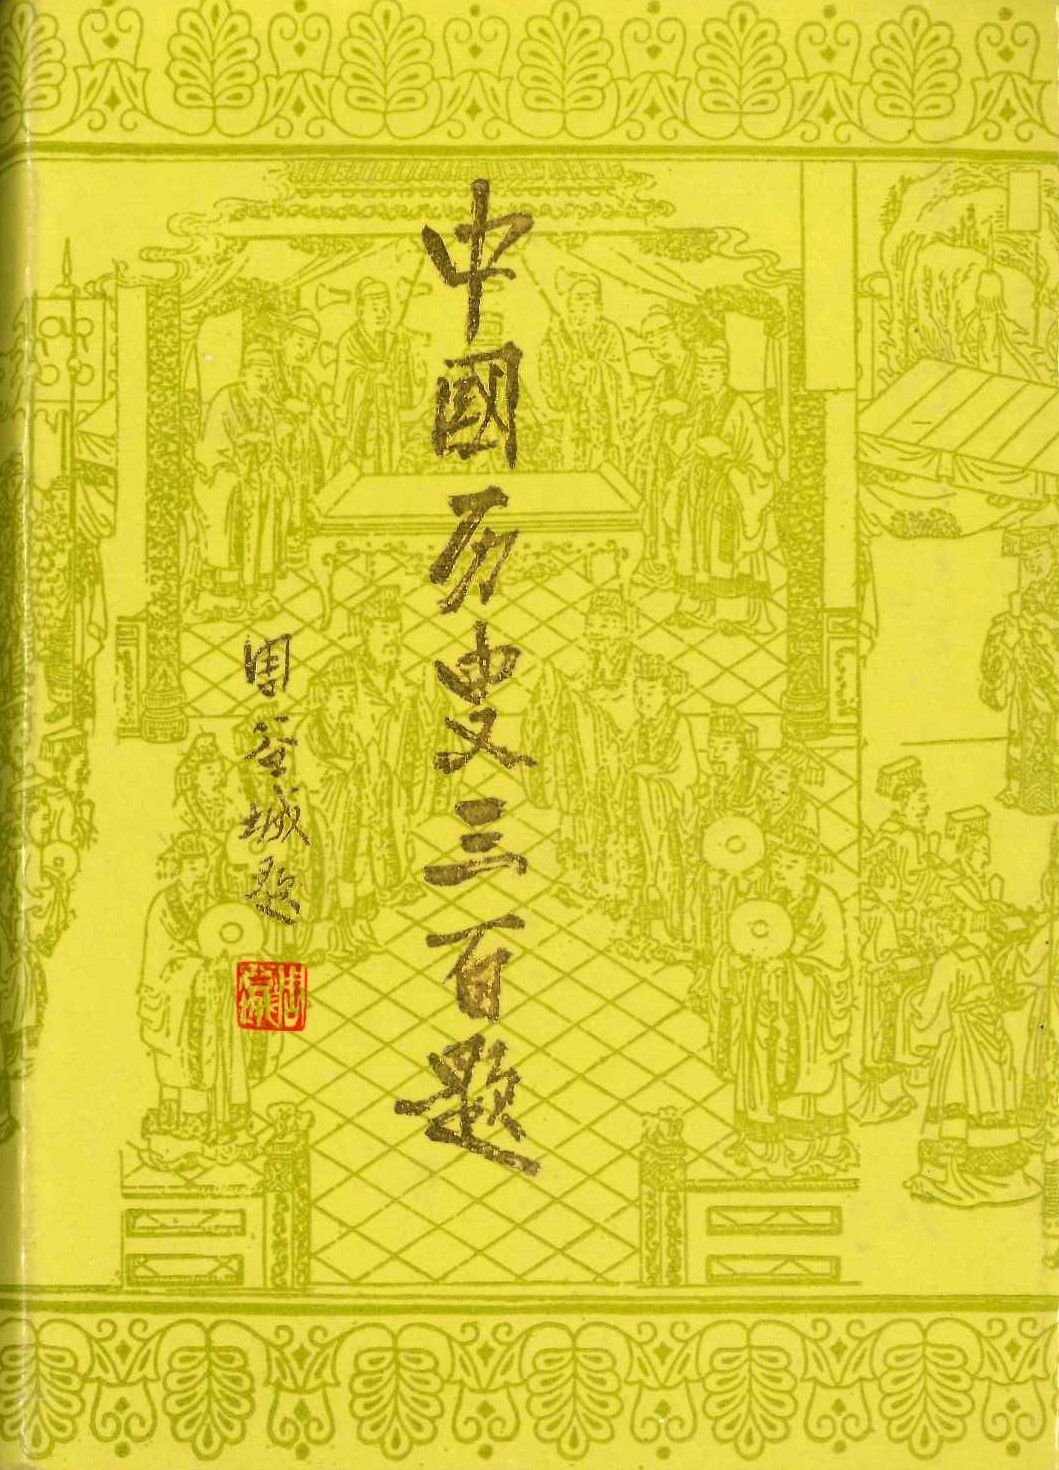 中國历史三百题
周谷城题